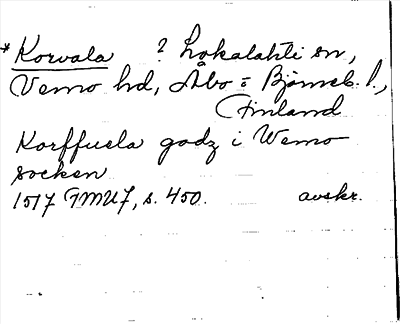 *Korvala ? Lokalahti sn,
Vemo hd, Åbo o Björneb. l.,
Finland
Korffuela godz i Wemo
socken
1517 FMU7, s. 450. avskr.